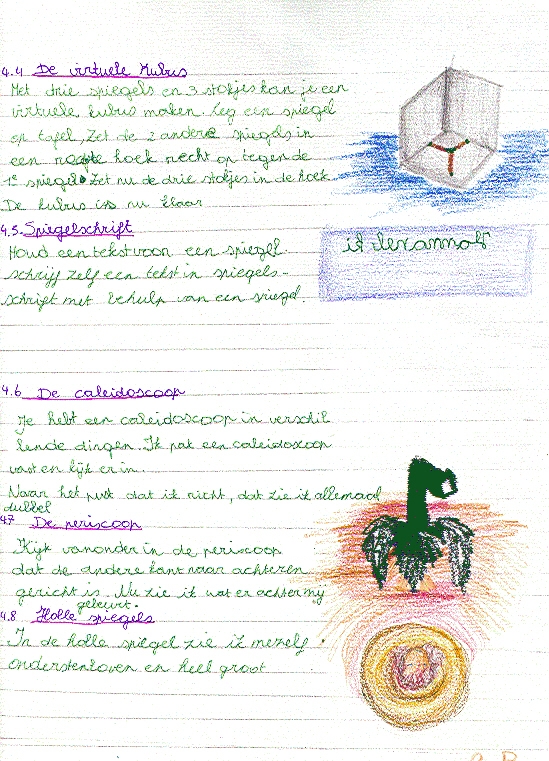 4.4 De virtuele kubus
Met drie spiegels en 3 stokjes kan je een
virtuele kubus maken. Leg een spiegel
op tafel, Zet de 2 andere spiegels in
een rechte hoek recht op tegen de
1e spiegel. Zet nu de drie stokjes in de hoek
De kubus is nu klaar
4.5. Spiegelschrift
Houd een tekst voor een spiegel.
schrijf zelf een tekst in spiegels-
schrift met behulp van een spiegel.
4.6 De caleidoscoop
Je hebt een caleidoscoop in verschil
lende dingen. Ik pak een caleidoscoop
vast en kijk er in.
Naar het punt dat ik richt, dat zie ik allemaal
dubbel
4.7 De periscoop
Kijk vanonder in de periscoop
dat de andere kant naar achteren
gericht is. Nu zie ik wat er achter mij
gebeurt.
4.8 Holle spiegels
In de holle spiegel zie ik mezelf
ondersteboven en heel groot